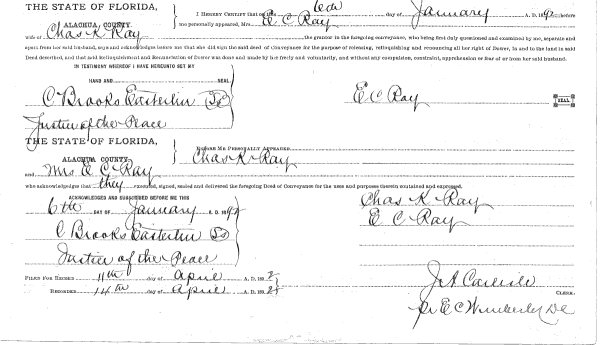 THE STATE OF FLORIDA,
ALACHUA COUNTY.
I HEREBY CERTIFY that on 6th day of January A. D. 189 before
me personally appeared, Mrs. E C Ray
wife of Chas K Ray the grantor in the foregoing conveyance, who being first duly questioned and examined by me, separate and
apart from her said husband, says and acknowledges before me that she did sign the said deed of Conveyance for the purpose of releasing, relinquishing and renouncing all her right of Dower, in and to the land in said
Deed described, and that said Relinquishment and Renunciation of Dower was done and made by her freely and voluntarily, and without any compulsion, constraint, apprehension or fear of or from her said husband.
IN TESTIMONY WHEREOF I HAVE HEREUNTO SET MY
HAND AND SEAL
C Brooks Easterlin
E C Ray SEAL
Justice of the Peace
THE STATE OF FLORIDA,
ALACHUA COUNTY.
BEFORE ME PERSONALLY APPEARED
Chas K Ray
and Mrs E C Ray
who acknowledges that they executed, signed, sealed and delivered the foregoing Deed of Conveyance for the uses and purposes therein contained and expressed.
ACKNOWLEDGED AND SUBSCRIBED BEFORE ME THIS
6th DAY OF January A. D. 1892
Chas K Ray
E C Ray
C Brooks Easterlin
Justice of the Peace
FILED FOR RECORD 11th day of April A. D. 189 2
RECORDED 14th day of April A. D. 189 2
J A Carlisle CLERK.
Pr E C Wimberly DC